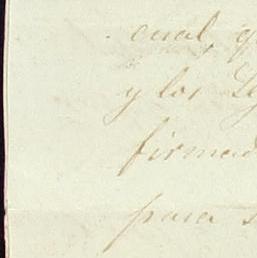 cual, q
y los Le
firmad
para s